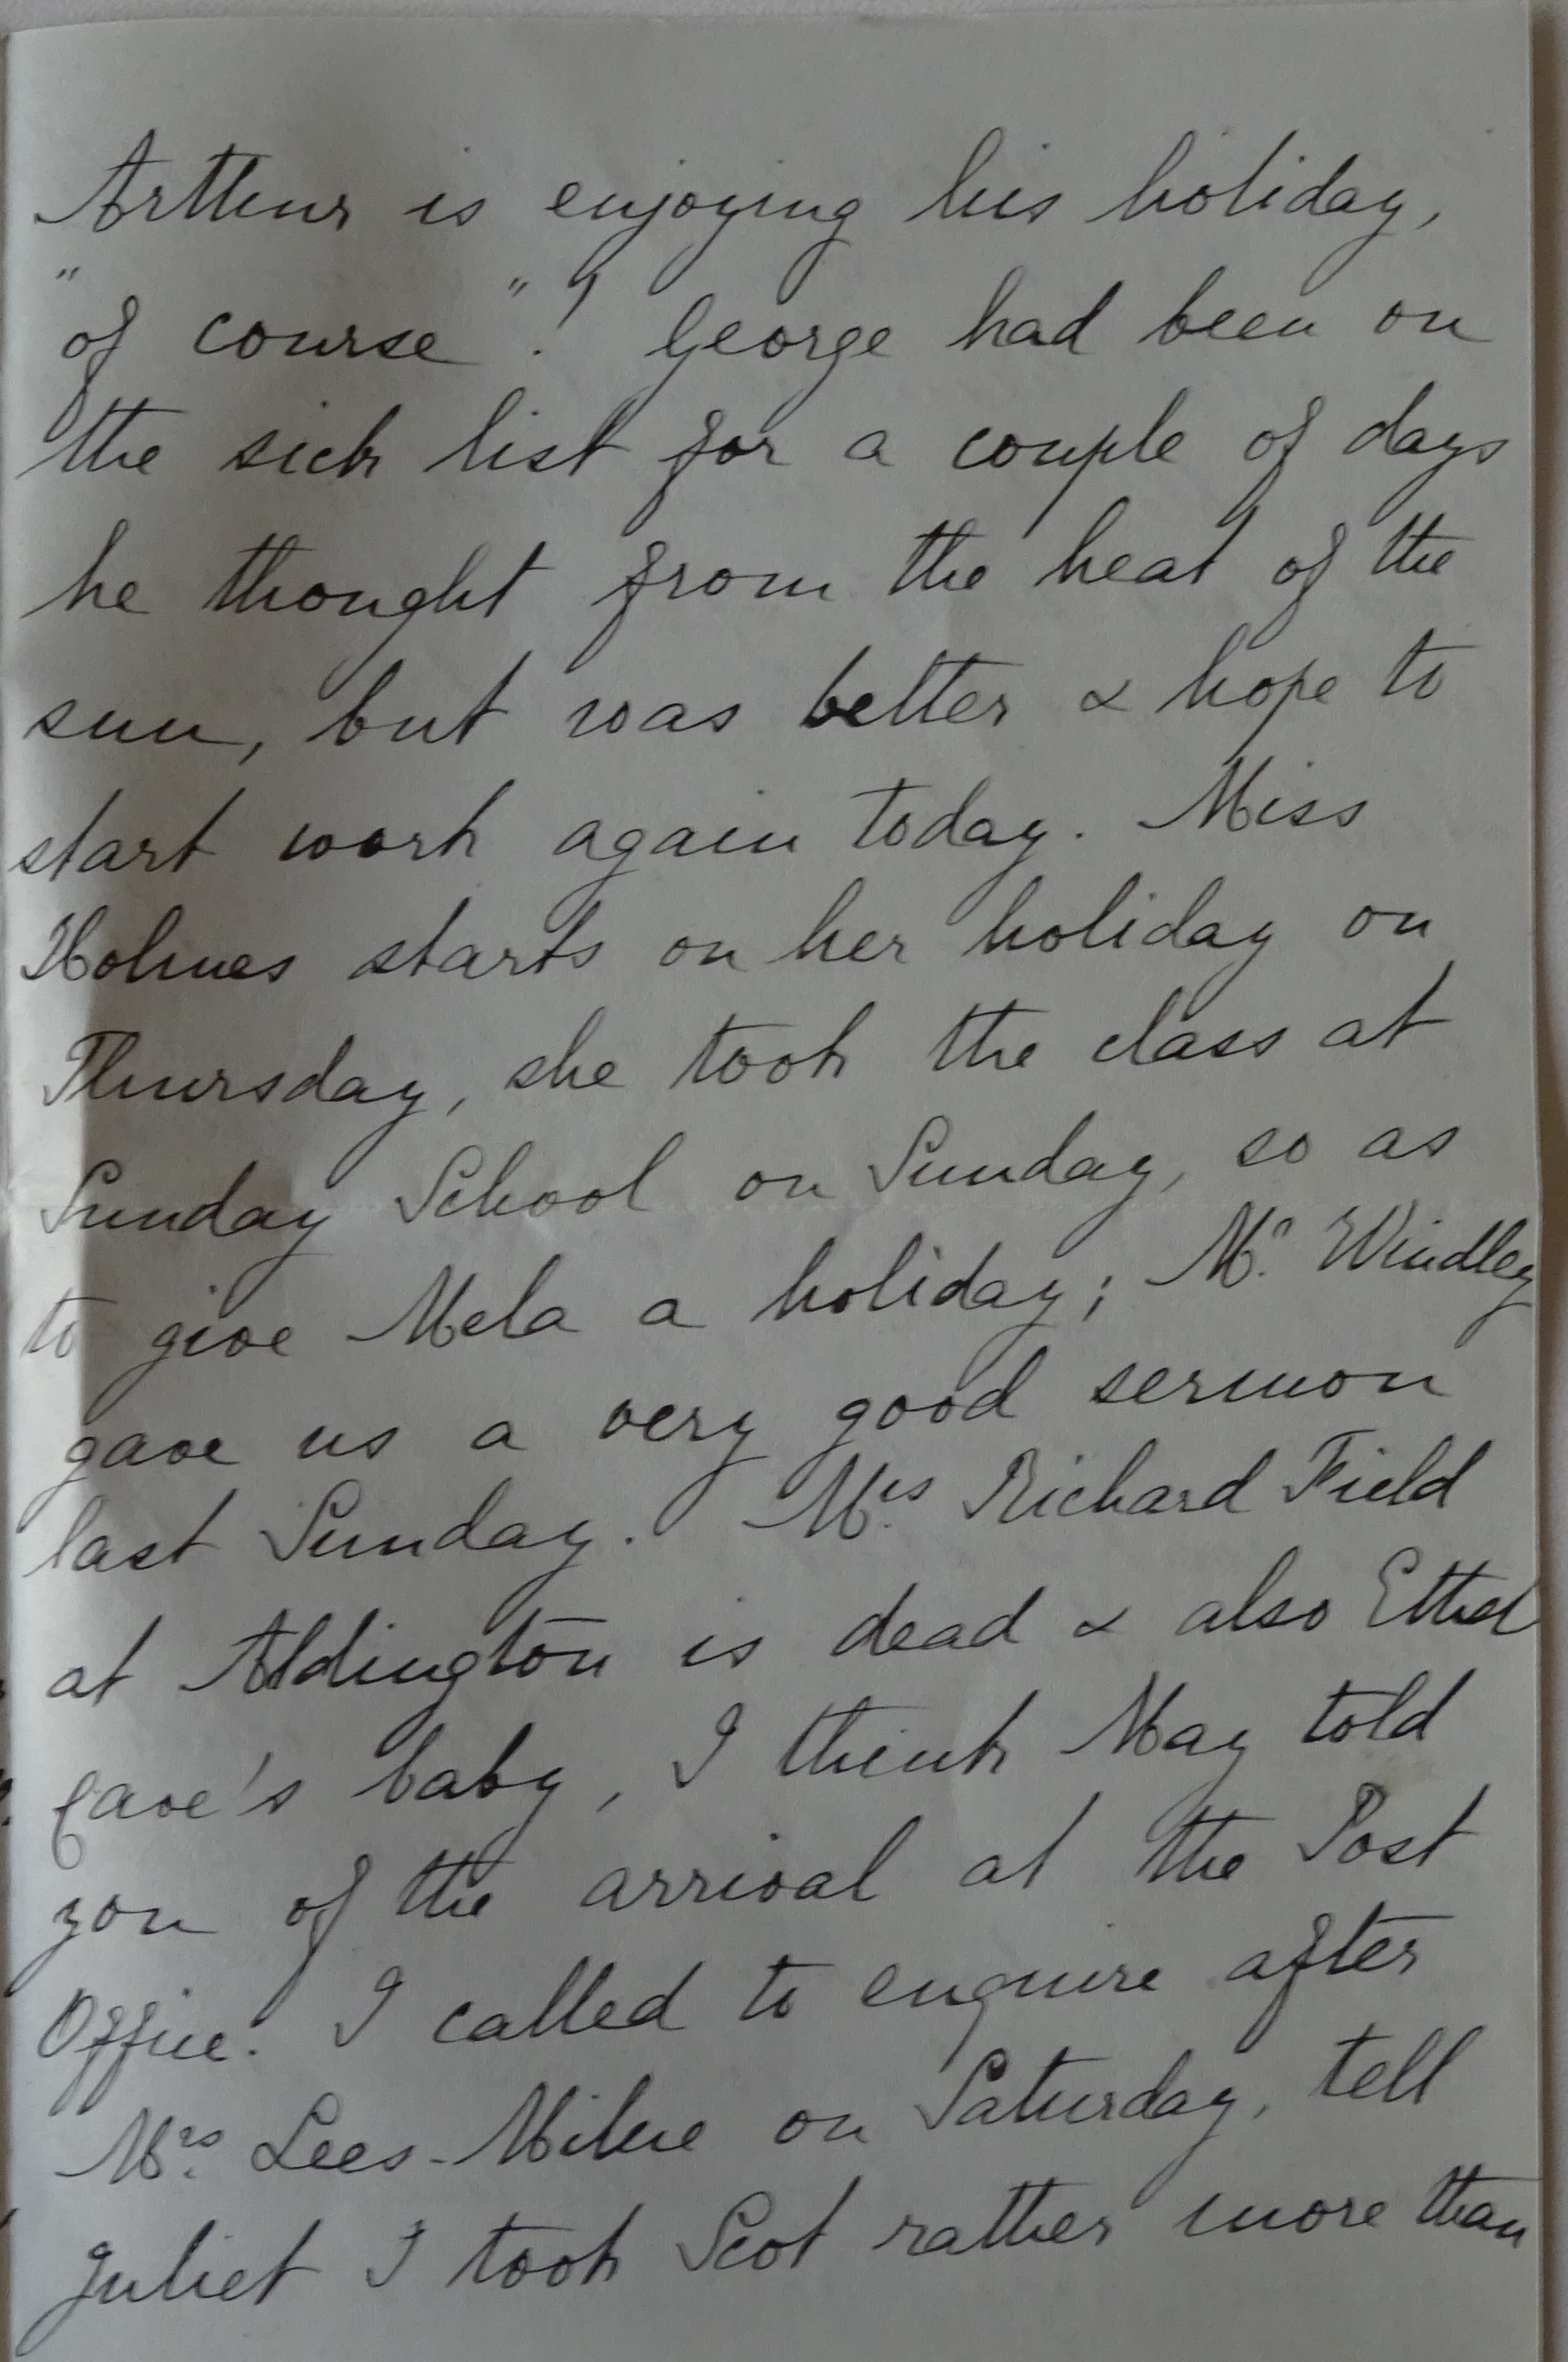 Arthur is enjoying his holiday,
"of course"! George had been on
the sick list for a couple of days
he thought from the heat of the
sun, but was better & hope to
start work again today. Miss
Holmes starts on her holiday on
Thursday, she took the class at
Sunday School on Sunday, so as
to give Mela a holiday; Mr. Windley
gave us a very good sermon
last Sunday. Mrs. Richard Field
at Aldington is dead & also Ethel
Cave's baby, I think May told
you of the arrival at the Post
Office. I called to enquire after
Mrs. Lees-Milne on Saturday, tell
Juliet I took Scot rather more than